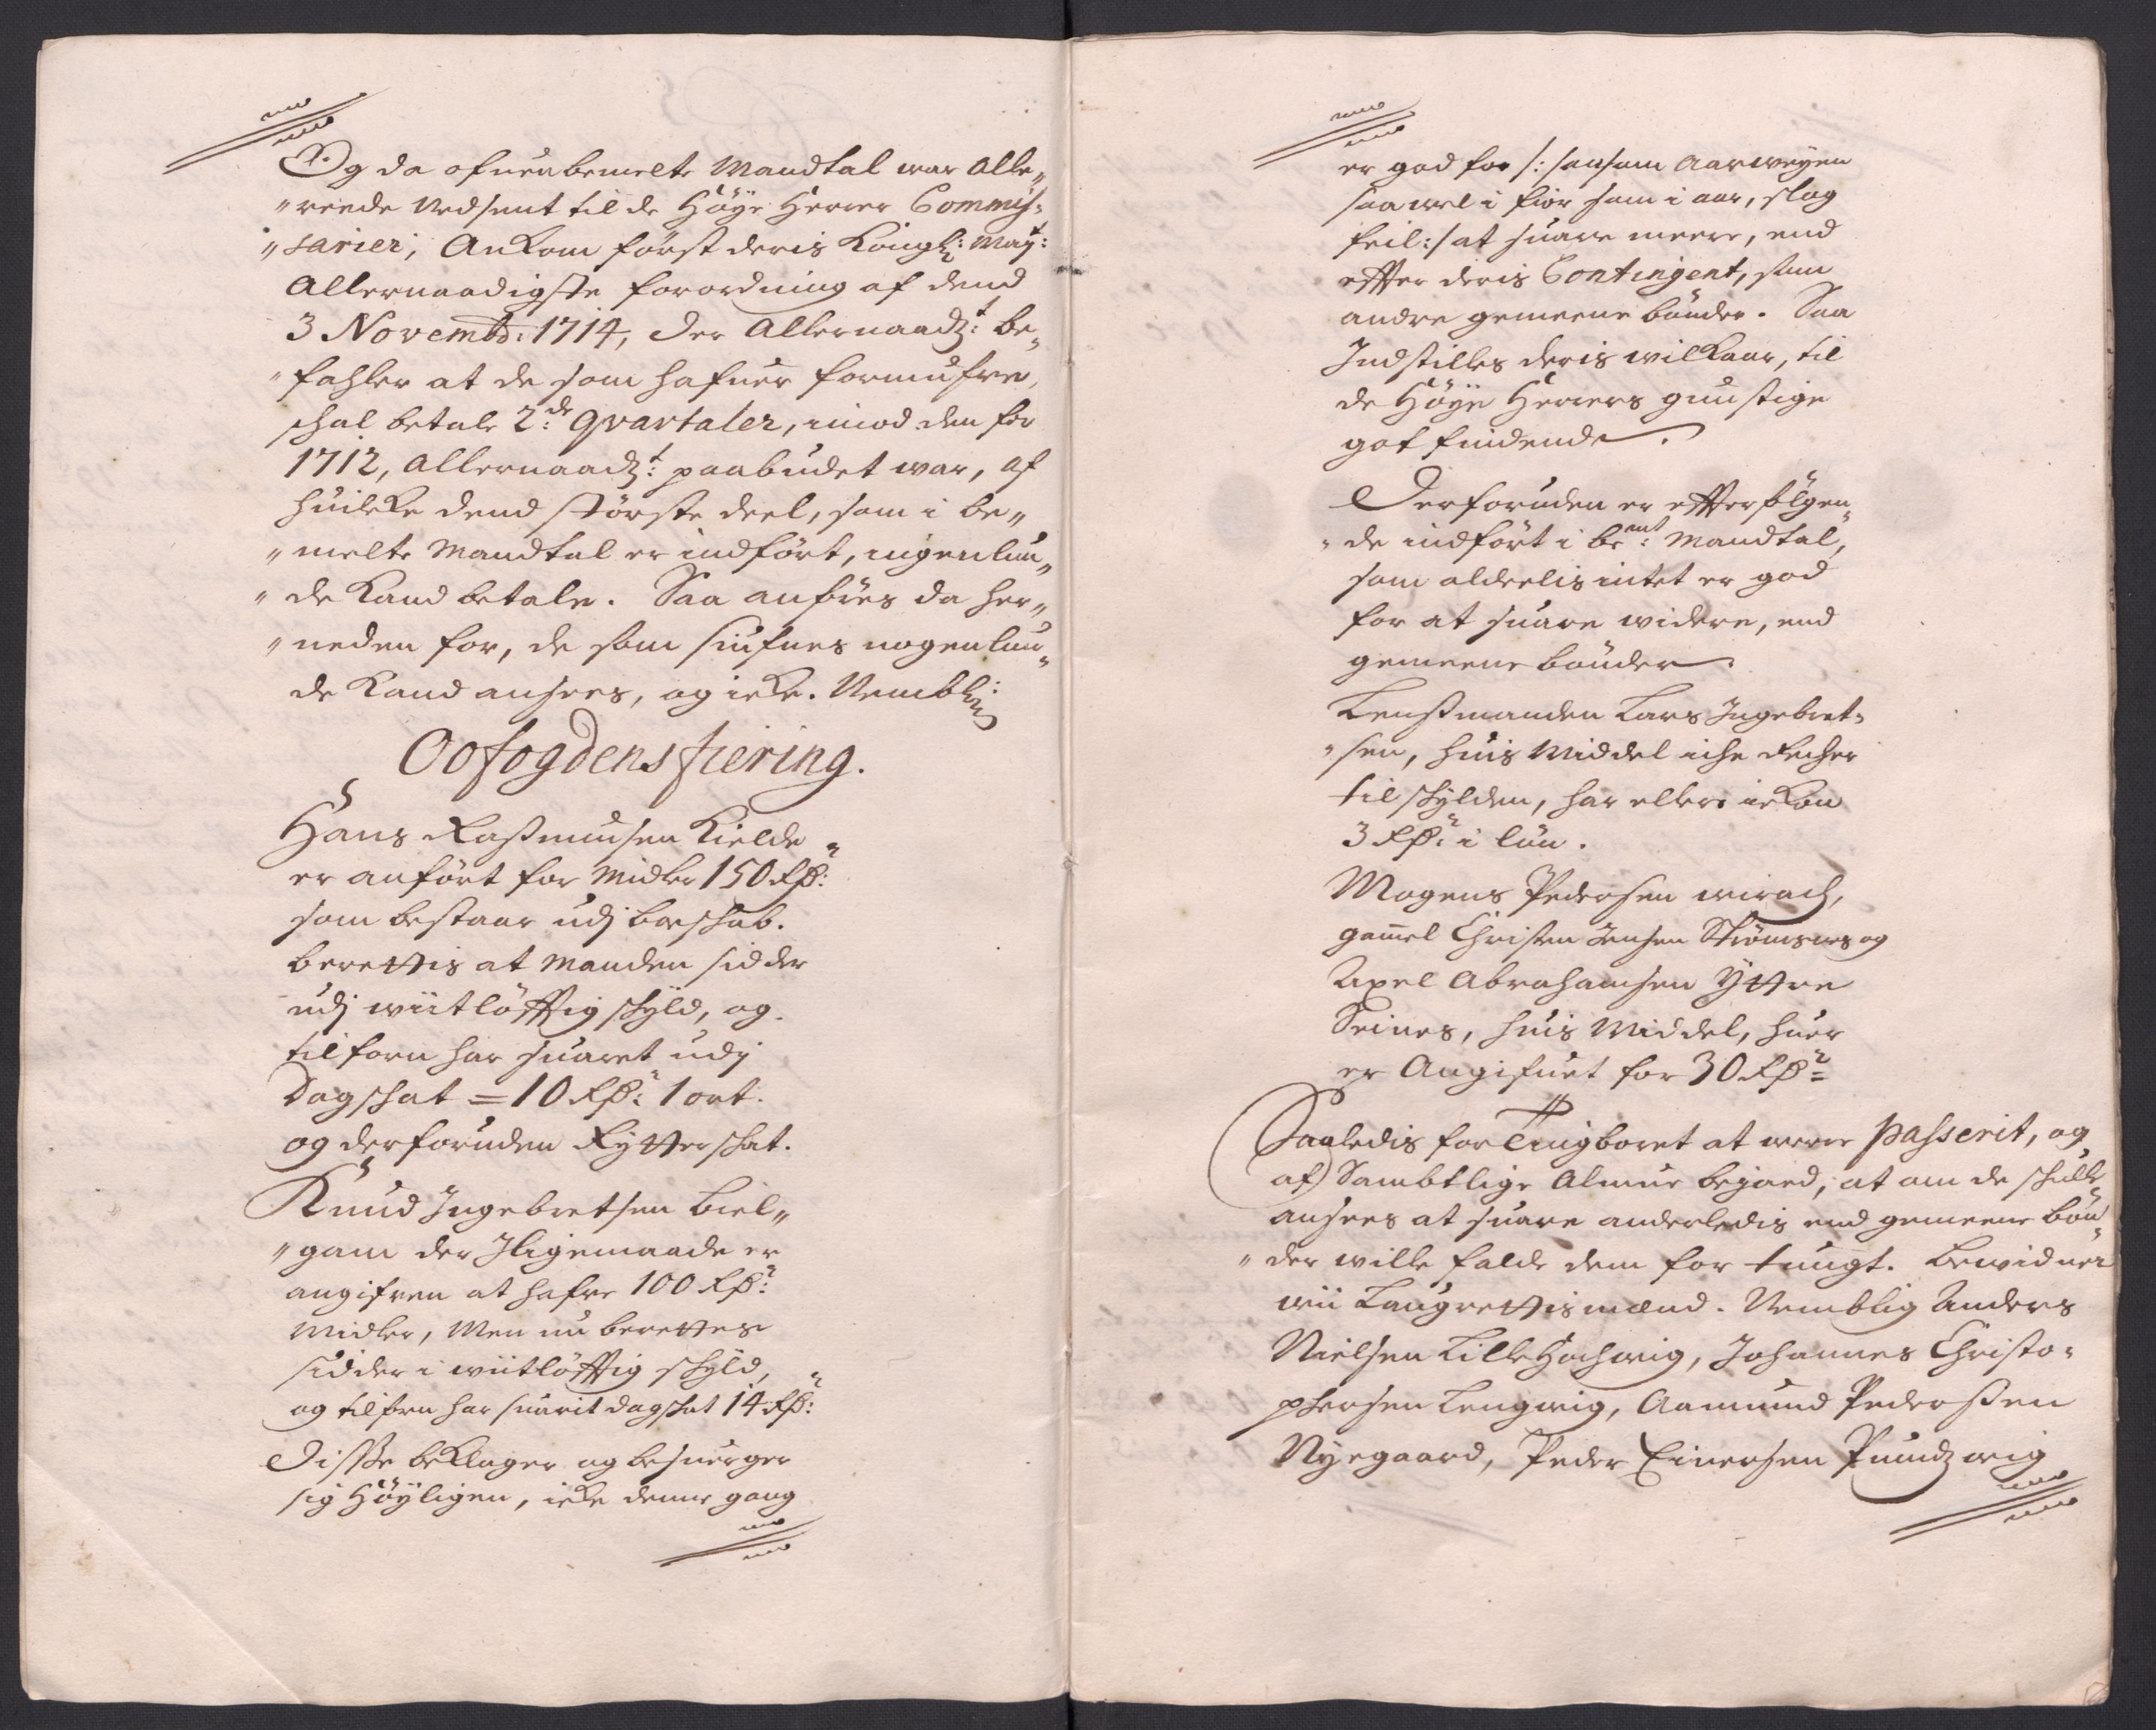 Og da ofuenbemelte Mandtal war Alle„
„reede Nedsent til de Höye Herrer Commis-
„sarier, AnKom först deris Kongl: May:t
Allernaadigste forordning af dend
3 Novembr: 1714, der Allernaadst: be„
„fahler at de som hafuer formufre,
schal betale 2:de qvartaler, imod den for
1712, Allernaadst: paabudet war, af
huilcke dend störste deel, som i be„
„melte Mandtal er indfört, ingenlun„
„de Kand betale. Saa anföres da her„
„neden for, de som siufnes nogenlun„
de Kand ansees, og icke. Nembl:
Oofogdens fiering.
Hans Rasmusen Kielde
er anfört for Midler 150 Rdr:
som bestaar udj boeschab.
berettis at Manden sidder
udj wiitlöfftig schyld, og
tilforn har suaret udj
Dagschat = 10 Rdr: 1 ort.
og derforuden Rytterschat.
Knud Ingebretsen Biel„
„gam der Jligemaade er
angifven at hafve 100 Rdr:
Midler, Men nu berettes
sidder i wiitlöfftig schyld,
og tilforn har suarit dagschat 14 Rdr:
Disse beklager og besuerger
sig Höyligen, icke denne gang
er god for /: saasom Aarweyen
saa wel i fior som i aar, slog
feil :/ at suare meere, end
effter deris Contingent, som
andre gemeene bönder. Saa
Indstilles deris wilkaar, til
de Höye Herrers gunstige
got findende.
Derforuden er effterfölgen„
„de indfört i bemt: Mandtal,
som aldeelis intet er god
for at suare widere, end
gemeene bönder.
Lensmanden Lars Ingebret„
„sen, huis Middel iche Recher
til schylden, har ellers ickon
3 Rdr: i lön.
Mogens Pedersen
gammel Christen Jensen Strömsnes og
Axel Abrahamsen Yttre
Seines, huis Middel, huer
er Angifuet for 30 Rdr:
Saaledis for Tingboret at were passerit, og
af Sambtlige Almue begjæred, at om de schulle
ansees at suare anderledis end gemeene bön„
„der wille falde dem for tungt. Bewidner
wii Laugrettismænd. Nemblig Anders
Nielsen Lille Hochwig, Johannes Christo-
phersen Lengwig, Aamund Pederssen
Nyegaard, Peder Einersen Pundswig